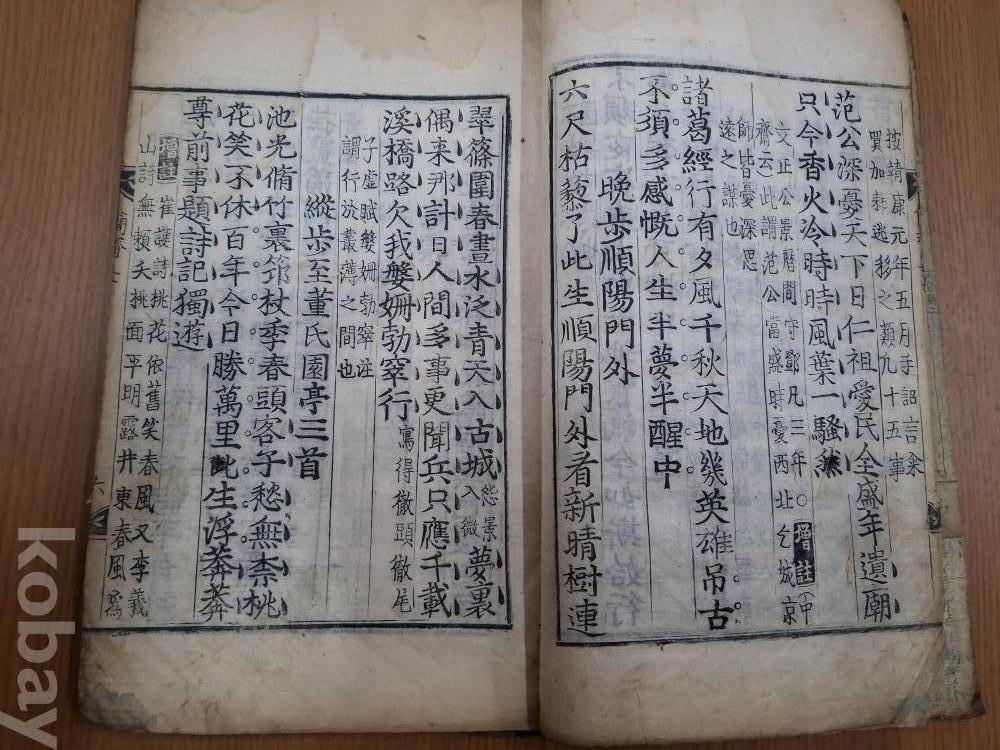 按靖康元年五月手詔言余
買加耗逃移之類凡十五事
范公深憂天下日仁祖愛民全盛年遺廟
只今香火冷時時風葉一騷然
文正公景曆間守鄧凡三年○增註(中
齋云)此謂范公當盛時憂西北乞城京
師皆憂深思
遠之謀也
諸葛經行有夕風千秋天地幾英雄吊古
不須多感慨人生半夢半醒中
晚步順陽門外
六尺枯藜了此生順陽門外看新晴樹連
翠篠圍春晝水泛青天入古城怨景入微夢裏
偶來那計日人間多事更聞兵只應千載
溪橋路欠我媻姍勃窣行寫得徹頭徹尾
子虛賦媻姍勃窣注
謂行於叢薄之間也
縱步至董氏園亭三首
池光脩竹裏筇杖季春頭客子愁無柰桃
花笑不休百年今日勝萬里此生浮莽莽
尊前事題詩記獨遊
增註崔護詩桃花依舊笑春風又李義
山詩無賴夭桃面平明露井東春風爲
六
kobay